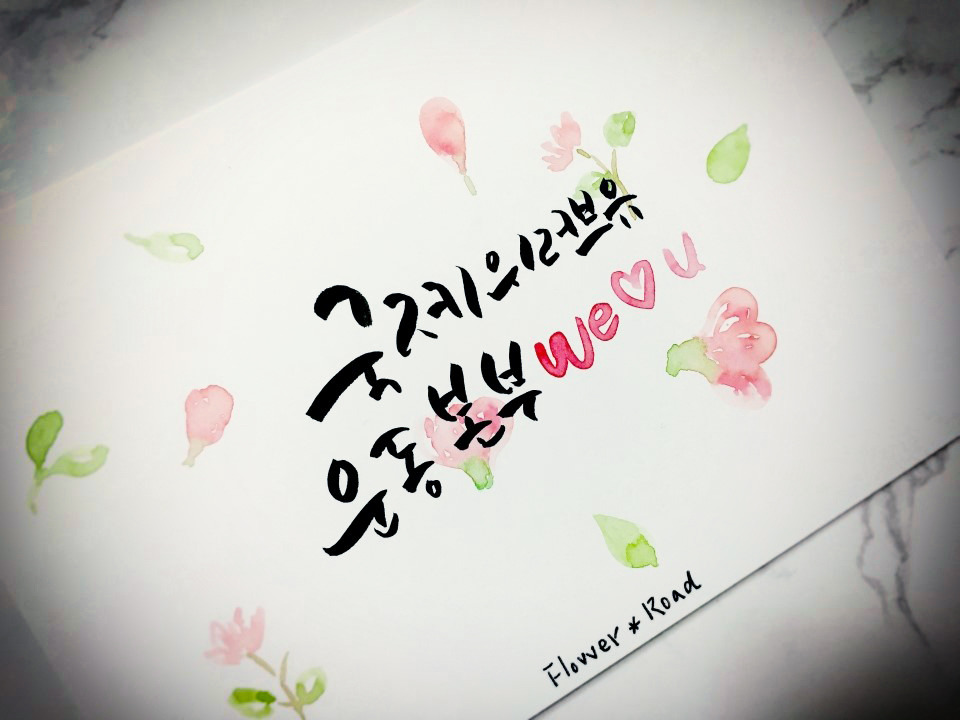 국제위러브유
운동본부 We♡u
Flower * Road